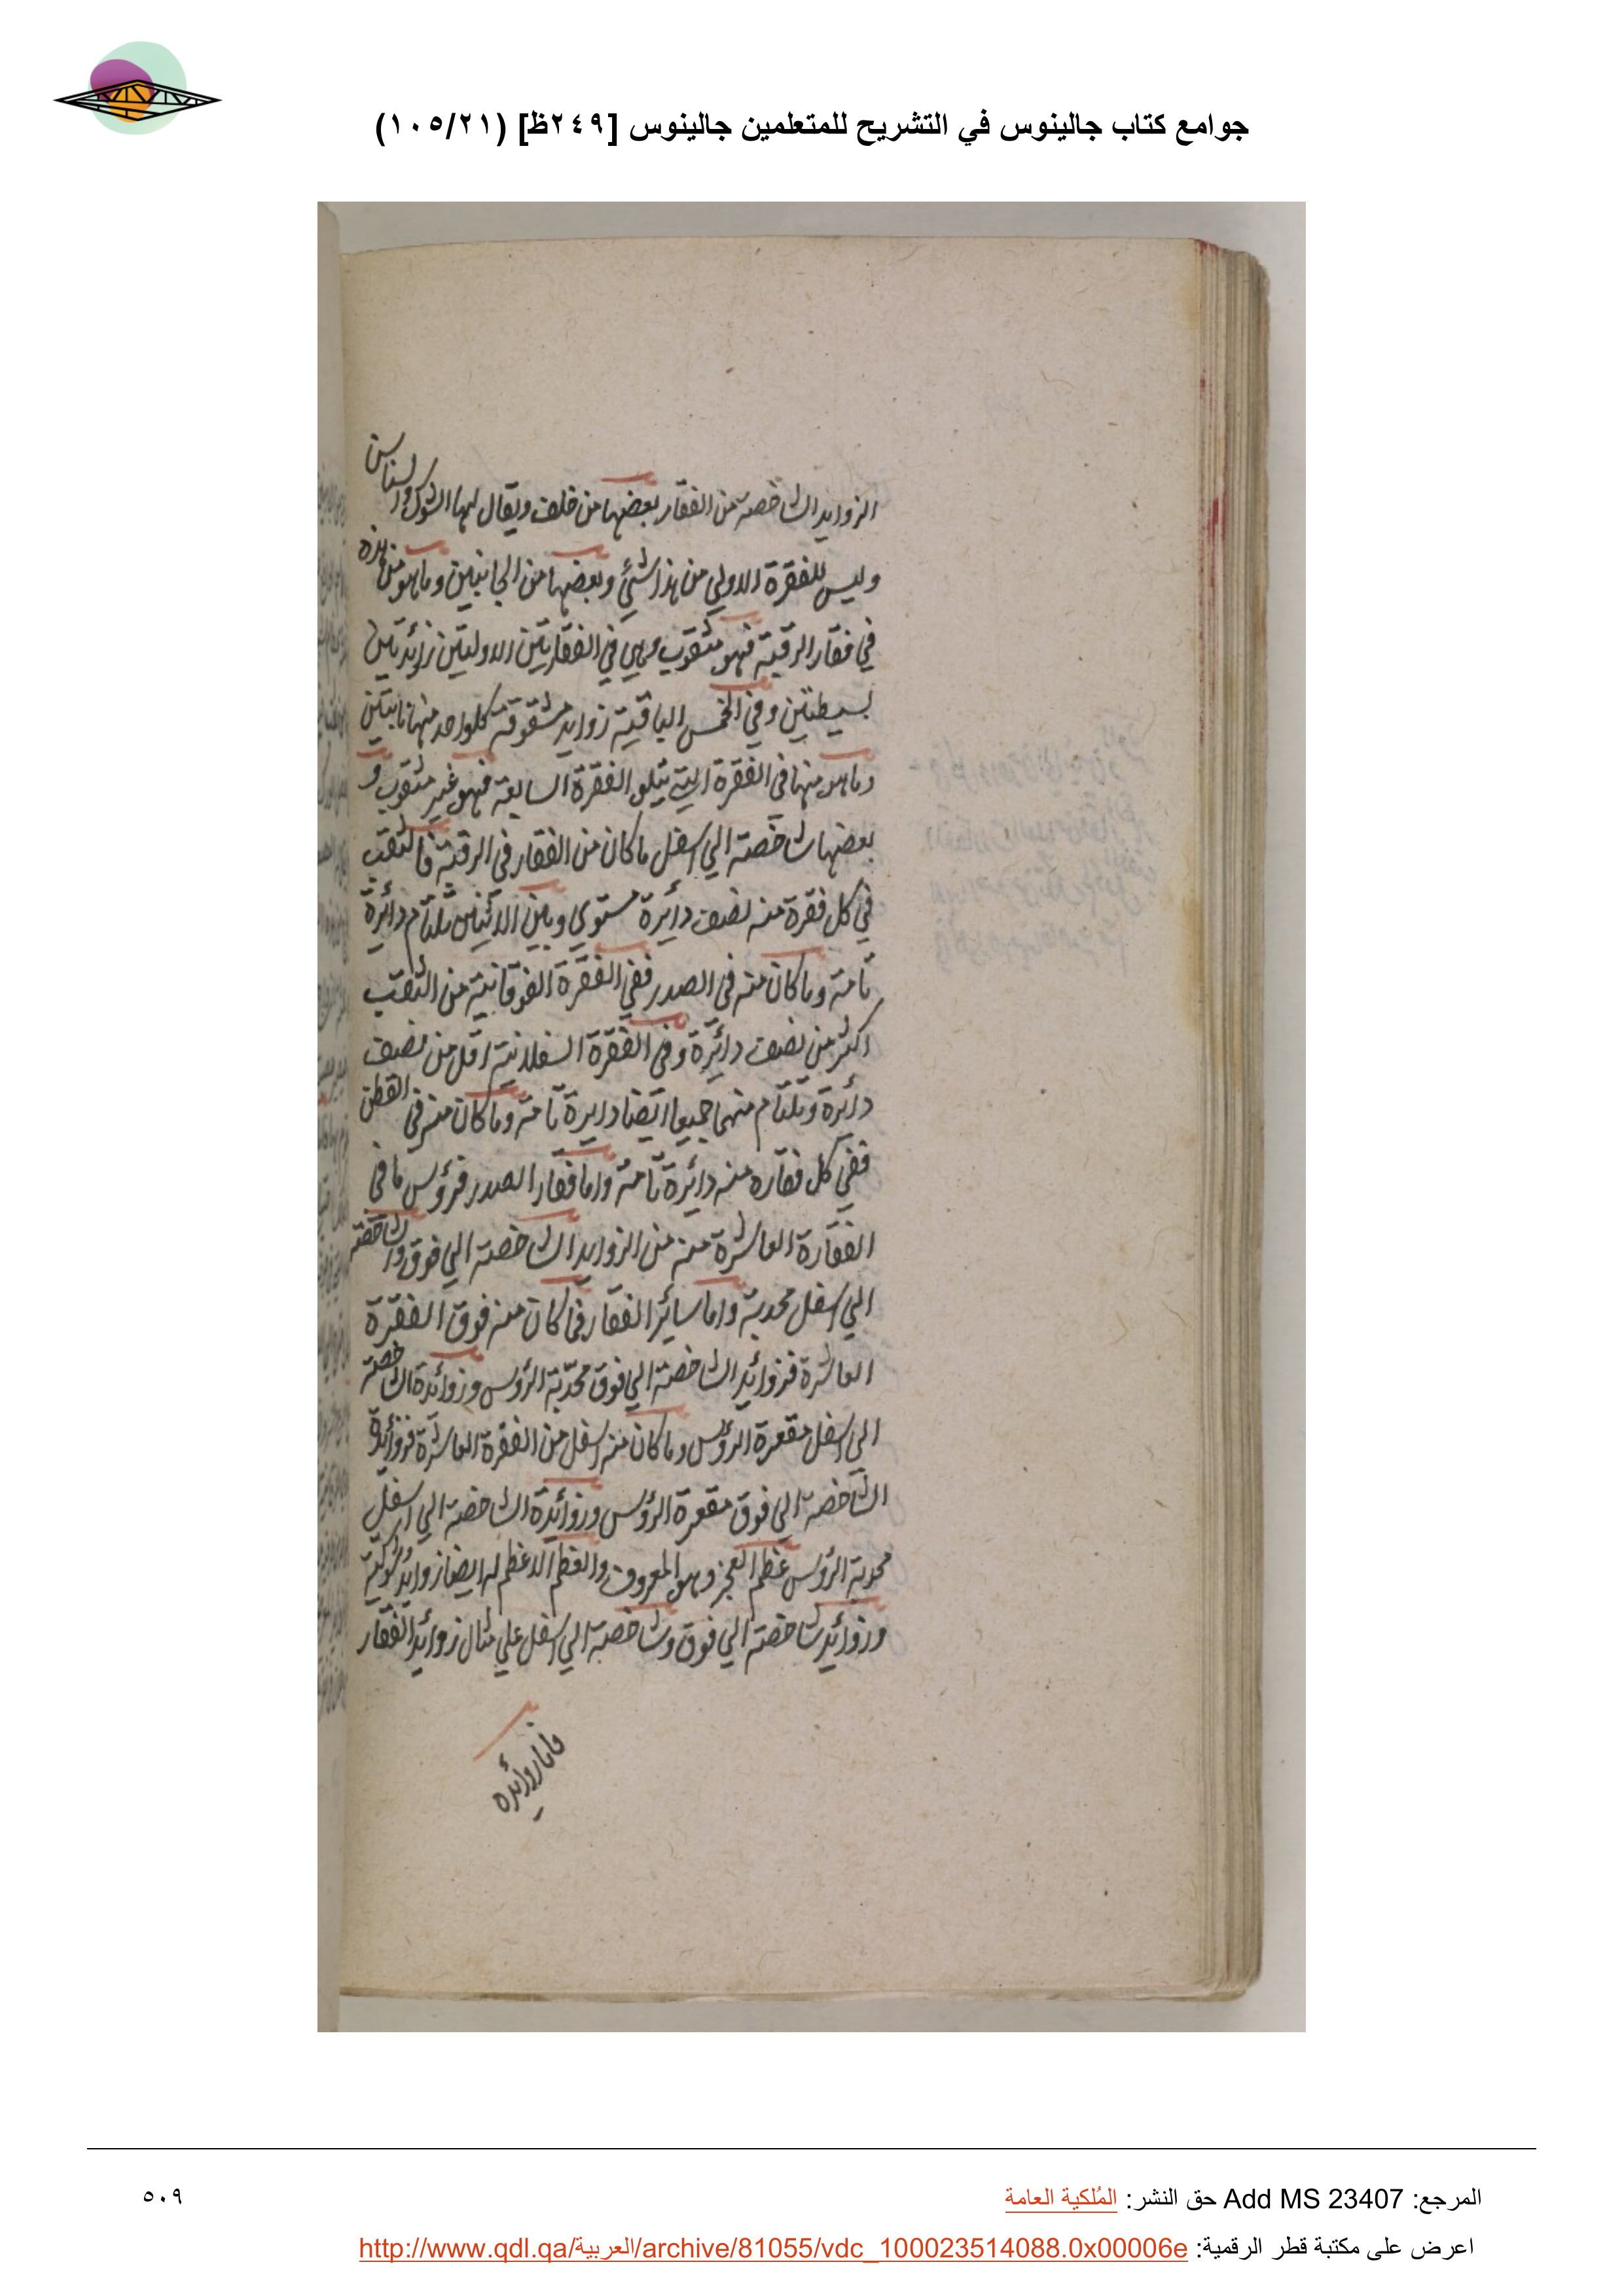 جوامع كتاب جالينوس في التشريح للمتعلمين جالينوس [٢٤٩ظ] (١٠٥/٢١)
الزوايد الشاخصة من الفقار بعضها من خلف ويقال لها الشوك والسناسن
وليس للفقرة الاولي من هذا شئ وبعضها من الجانبين وما هو من هذه
في فقار الرقبة فهو مثقوب وهي في الفقارتين الاوليتين زائدتين
بسيطتين وفي الخمس الباقية زوايد مشقوقة كلواحد منها نابتين
وما هو منها في الفقرة التي تتلو الفقرة السابعة فهو غير مثقوب و
بعضها شاخصة الي اسفل ما كان من الفقار في الرقبة فالثقب
في كل فقرة منه نصف دائرة مستوي وبين الاثنين تلتام دائرة
تامة وما كان منه في الصدر ففي الفقرة الفوقانية من الثقب
اكثر من نصف دائرة وفي الفقرة السفلانية اقل من نصف
دائرة وتلتام منهما جميعا ايضا دايرة تامة وما كان منه في القطن
ففي كل فقاره منه دائرة تامة واما فقار الصدر فرؤس ما في
الفقارة العاشرة منه من الزوايد الشاخصة الي فوق والشاخصة
الي اسفل محدبة واما سائر الفقار فما كان منه فوق الفقرة
العاشرة فزوائد الشاخصة الي فوق محدبة الرؤس وزوائدة الشاخصة
الي اسفل مقعرة الرؤس وما كان منه اسفل من الفقرة العاشرة فزوائدة
الشاخصة الي فوق مقعرة الرؤس وزوائدة الشاخصة الي اسفل
محدبة الرؤس عظم العجز وهو المعروف والعظم الاعظم له ايضا زوايد شوكية
وزوائد شاخصة الي فوق وشاخصة الي اسفل علي مثال زوائد الفقار
فاما زوائده
المرجع: Add MS 23407 حق النشر: المُلكية العامة
٥٠٩
اعرض على مكتبة قطر الرقمية: http://www.qdl.qa/العربية/archive/81055/vdc_100023514088.0x00006e